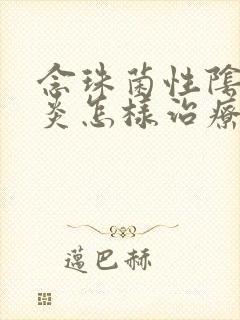 念珠菌性陰
炎怎樣治療
蒀巴赫